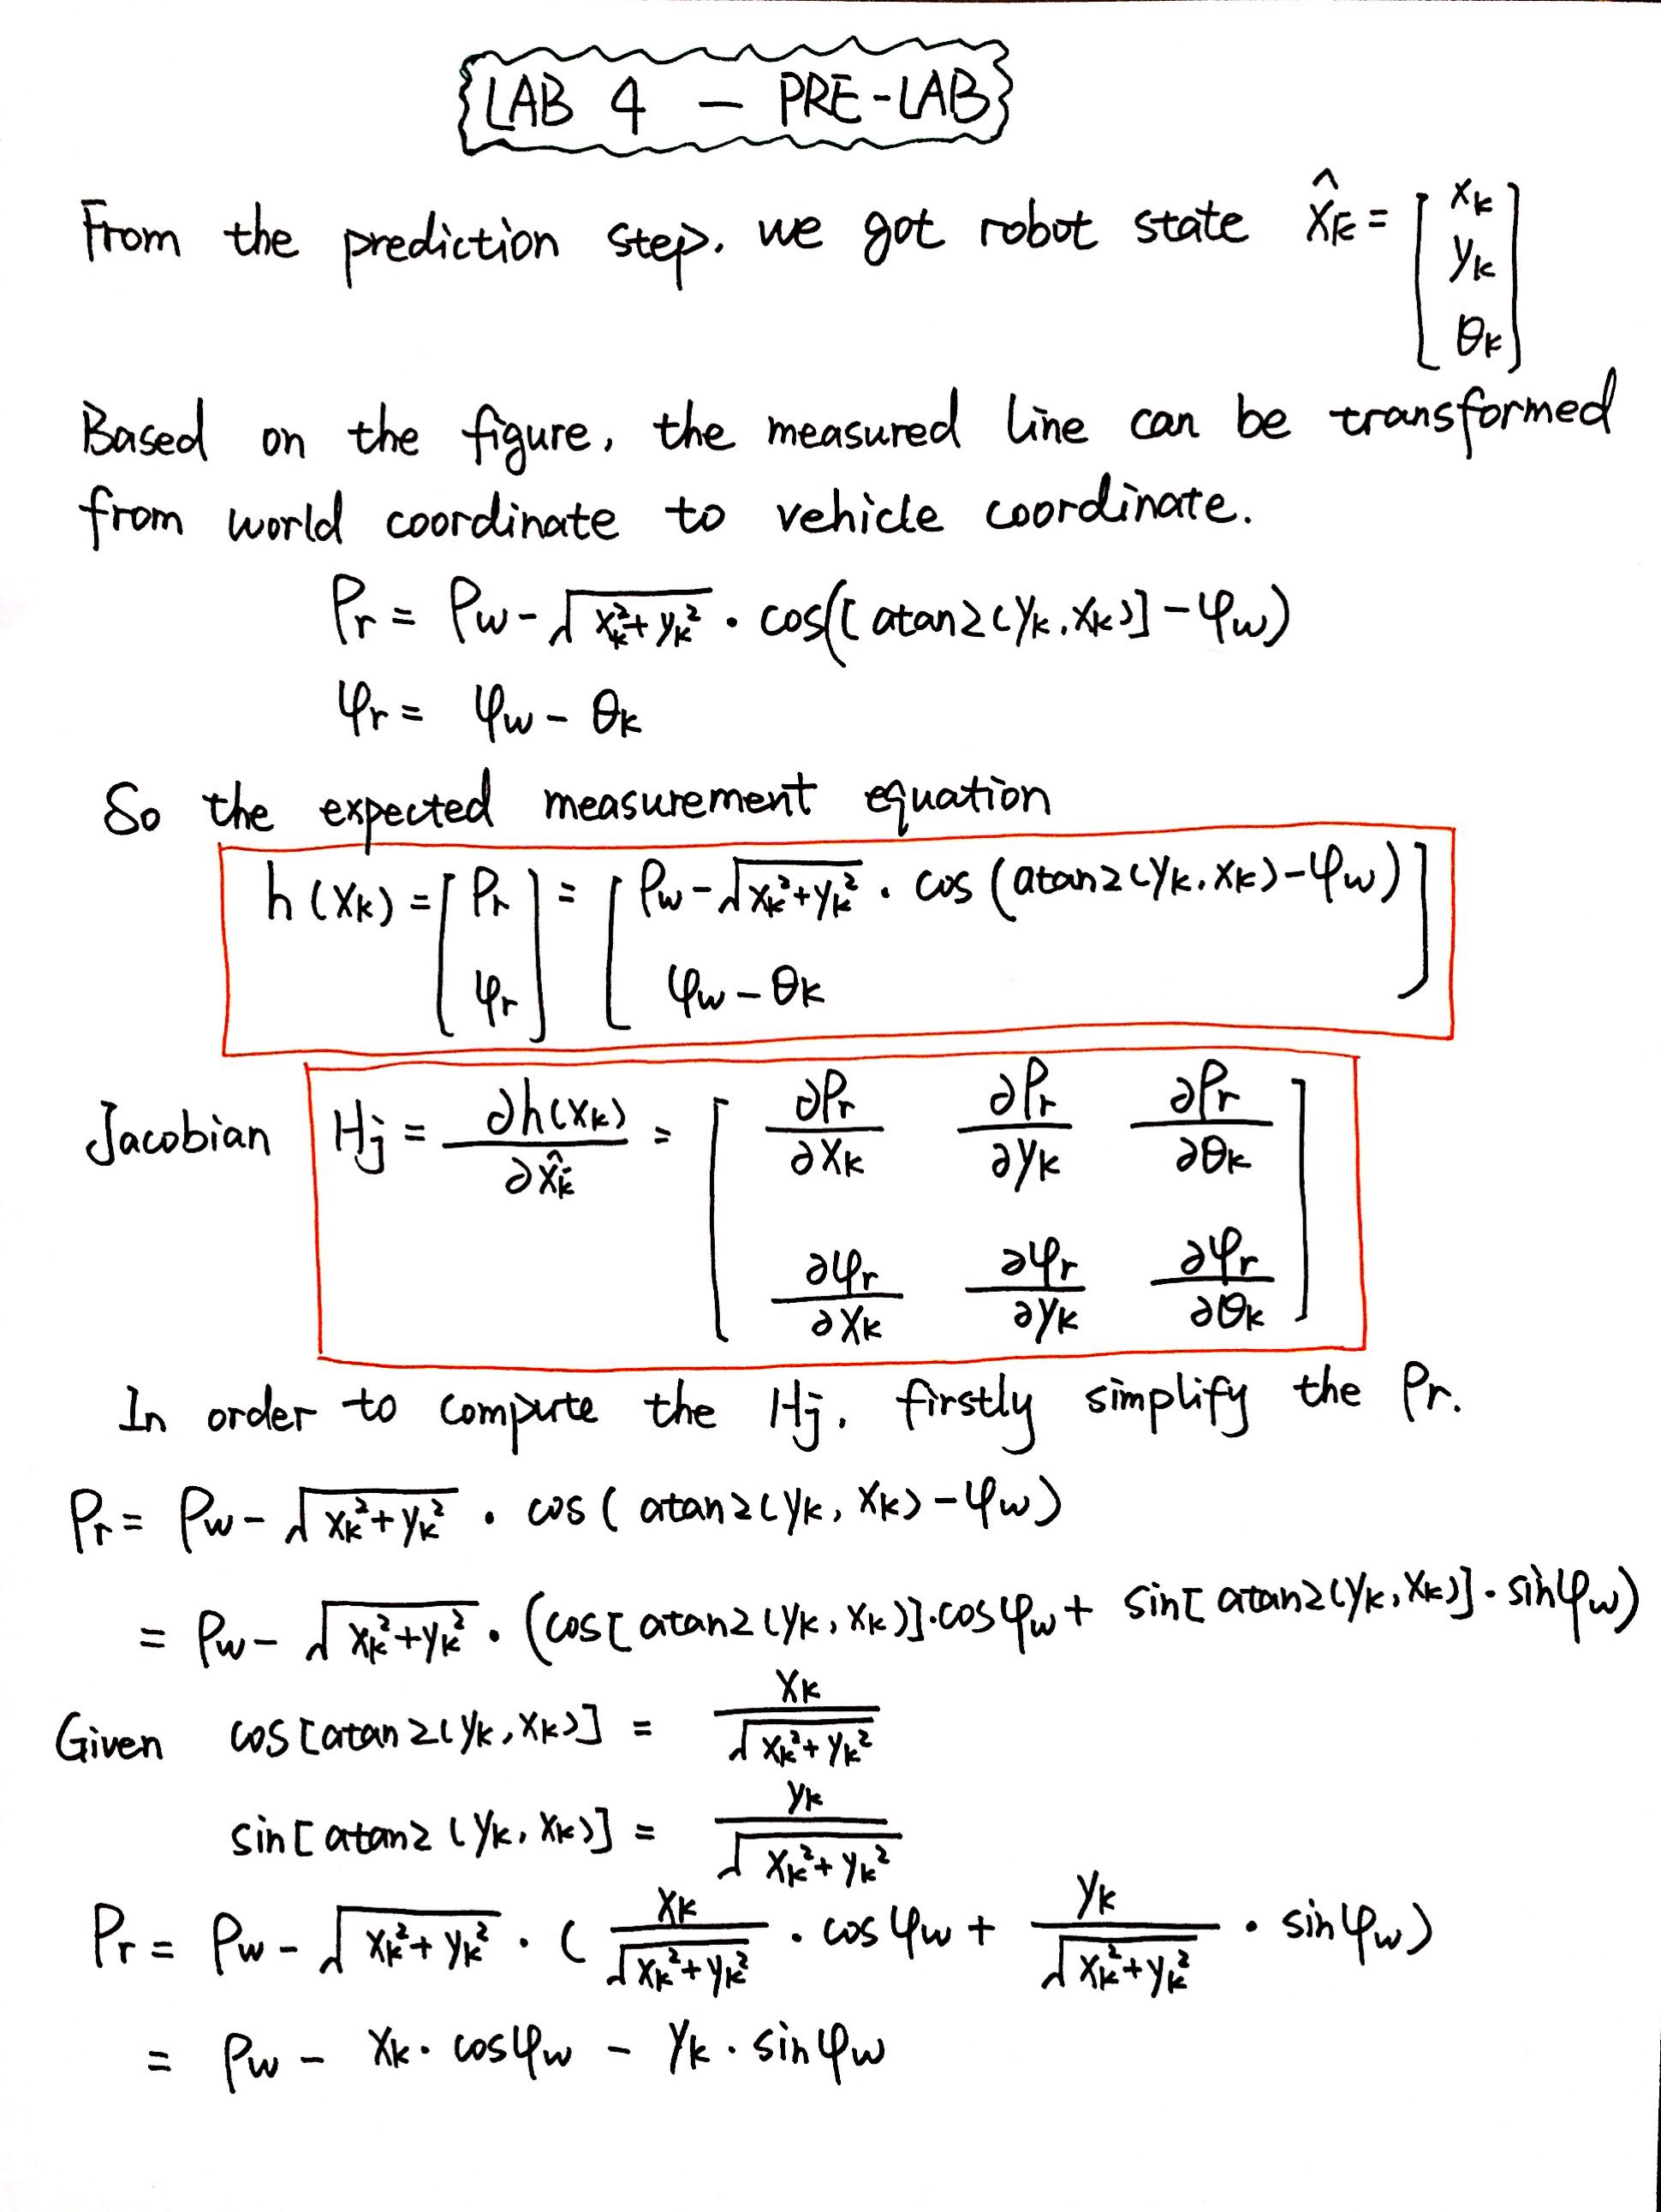 LAB 4 — PRE-LAB
From the prediction step, we got robot state x̂ₖ = [xₖ; yₖ; θₖ]
Based on the figure, the measured line can be transformed
from world coordinate to vehicle coordinate.
ρr = ρw - √(xₖ² + yₖ²) · cos([atan2(yₖ, xₖ)] - φw)
φr = φw - θₖ
So the expected measurement equation
h(xₖ) = [ρr; φr] = [ρw - √(xₖ² + yₖ²) · cos(atan2(yₖ, xₖ) - φw); φw - θₖ]
Jacobian Hj = ∂h(xₖ)/∂x̂ₖ = [∂ρr/∂xₖ ∂ρr/∂yₖ ∂ρr/∂θₖ; ∂φr/∂xₖ ∂φr/∂yₖ ∂φr/∂θₖ]
In order to compute the Hj, firstly simplify the ρr.
ρr = ρw - √(xₖ² + yₖ²) · cos(atan2(yₖ, xₖ) - φw)
= ρw - √(xₖ² + yₖ²) · (cos[atan2(yₖ, xₖ)]·cosφw + sin[atan2(yₖ, xₖ)]·sinφw)
Given cos[atan2(yₖ, xₖ)] = xₖ/√(xₖ² + yₖ²)
sin[atan2(yₖ, xₖ)] = yₖ/√(xₖ² + yₖ²)
ρr = ρw - √(xₖ² + yₖ²) · (xₖ/√(xₖ² + yₖ²) · cosφw + yₖ/√(xₖ² + yₖ²) · sinφw)
= ρw - xₖ· cosφw - yₖ · sinφw